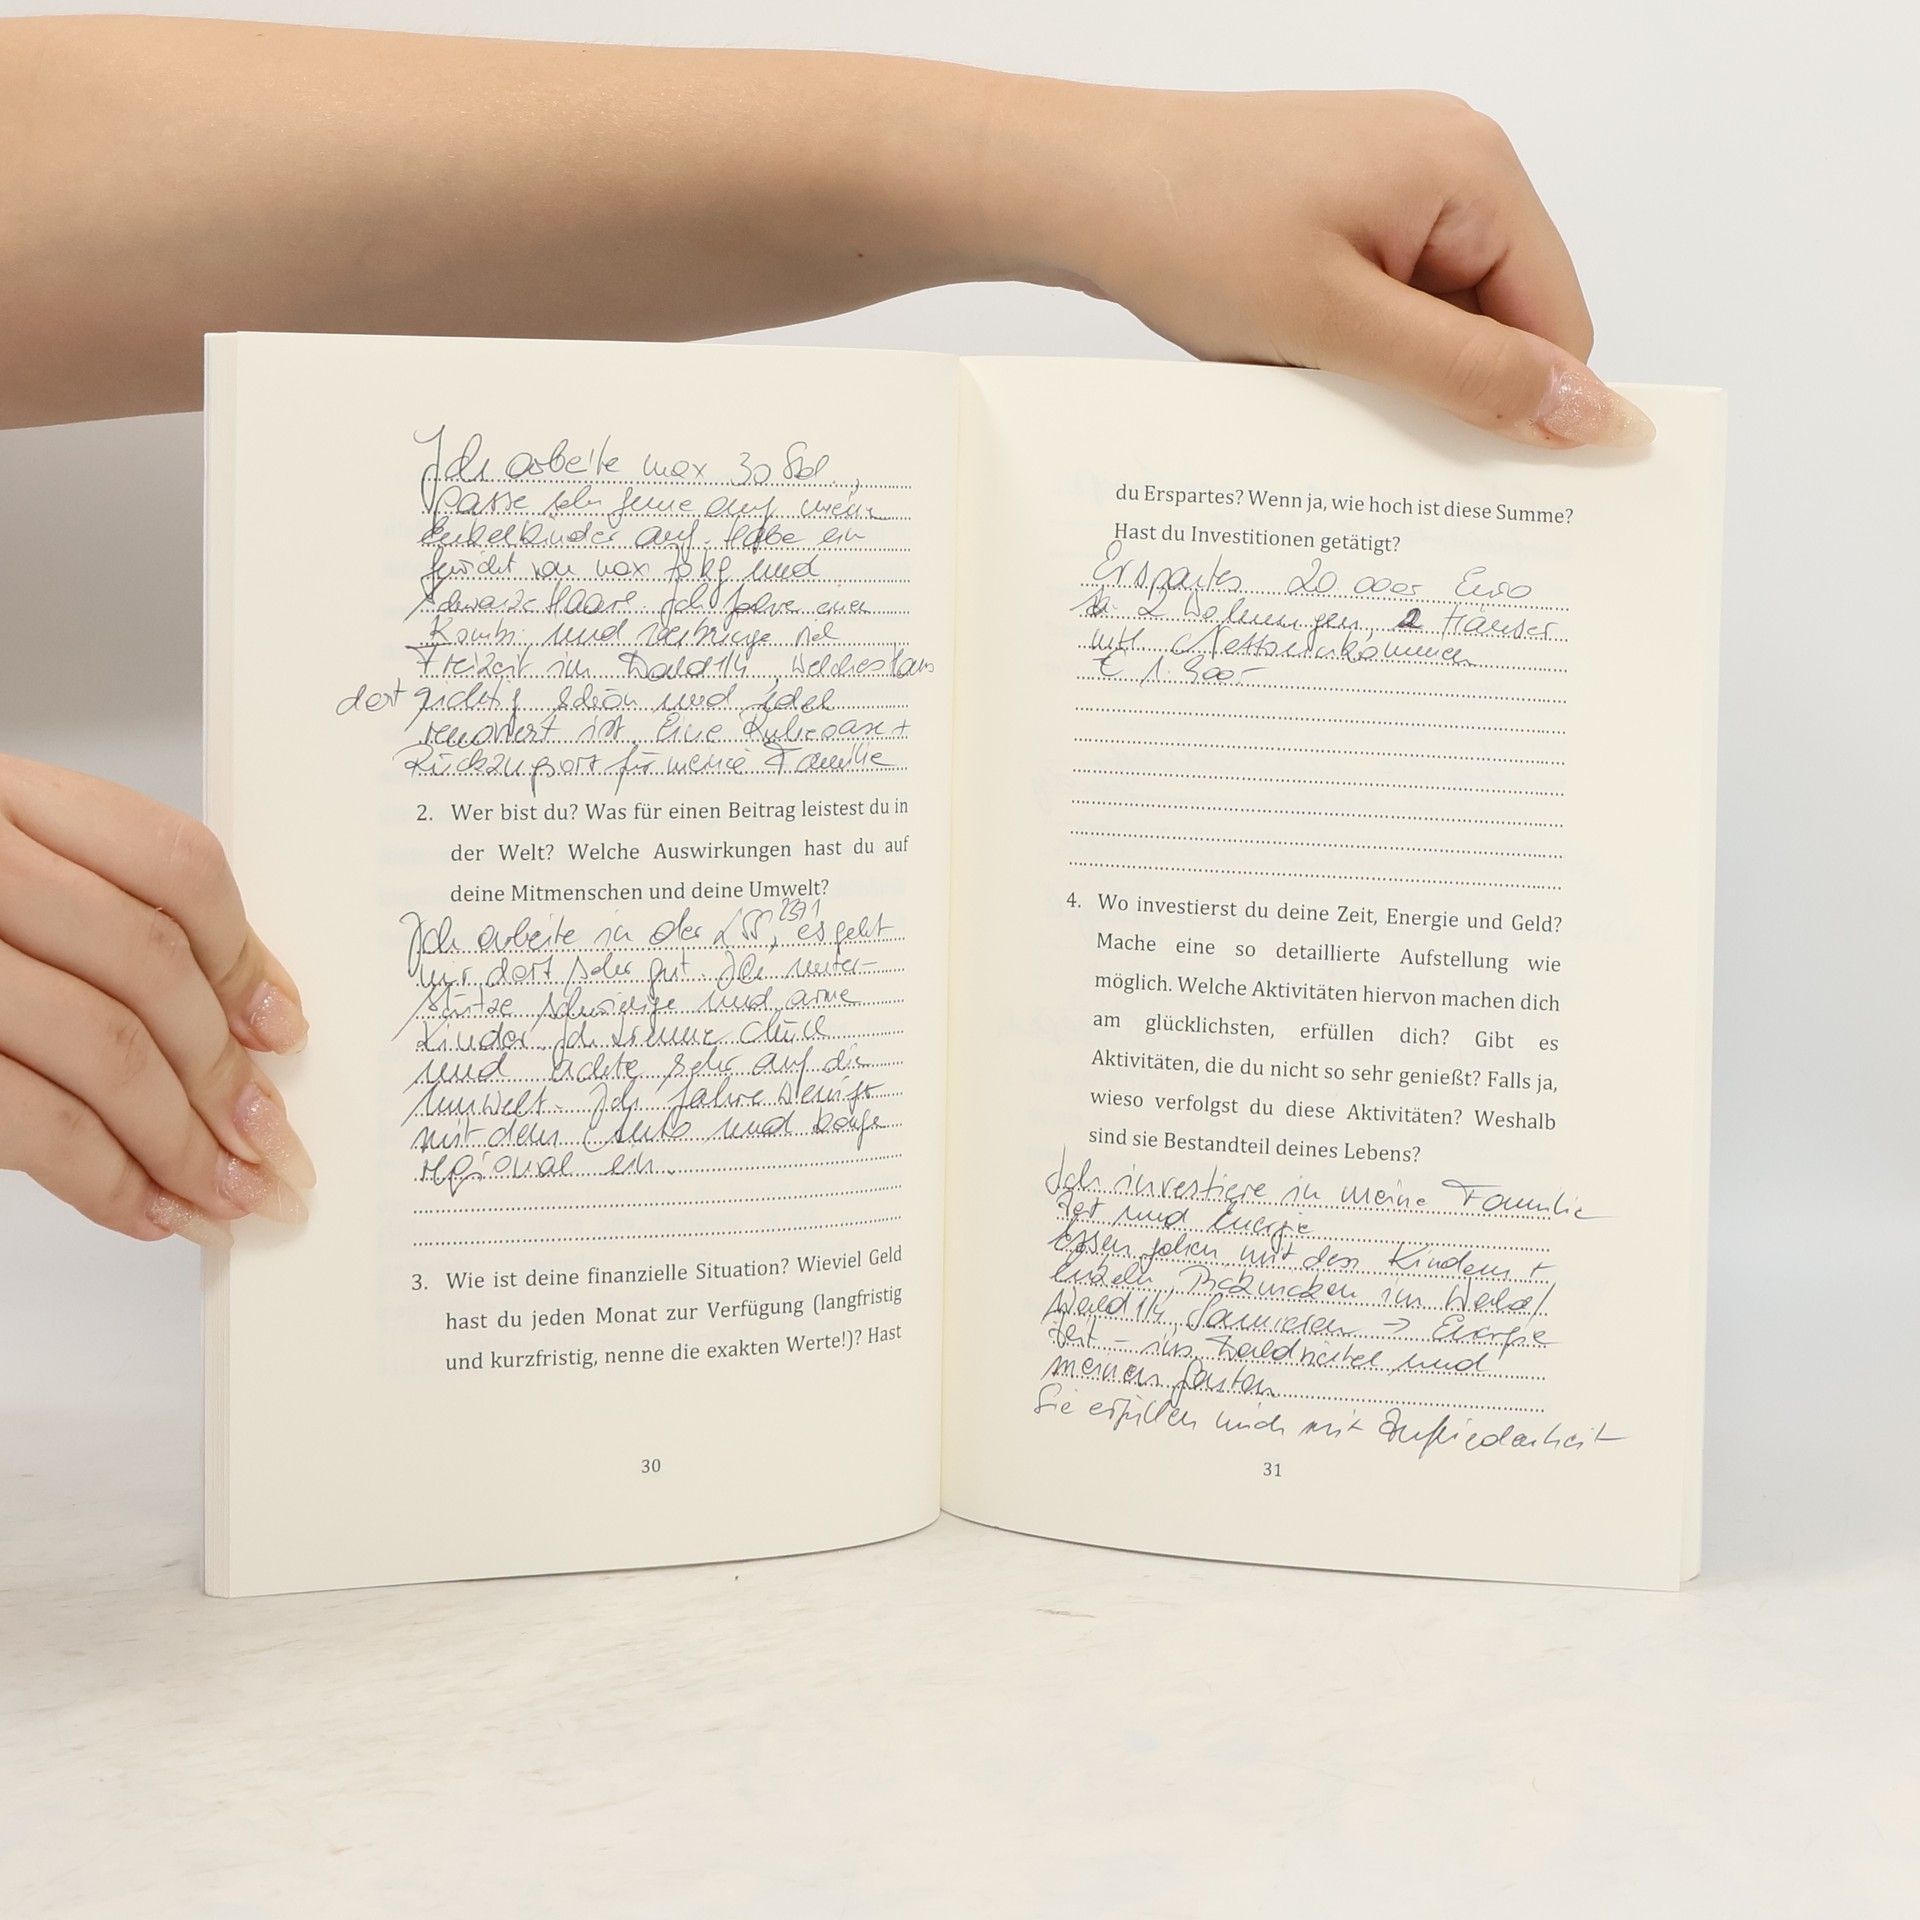 Ich arbeite max 30 Std.,
passe sehr gerne auf meine
Enkelkinder auf. Habe ein
Gewicht von max 70 kg und
schwarze Haare. Ich fahre einen
Kombi und verbringe viel
Freizeit im Wald 1/4, welches Haus
dort richtig schön und edel
renoviert ist. Eine Ruheoase +
Rückzugsort für meine Familie
2. Wer bist du? Was für einen Beitrag leistest du in
der Welt? Welche Auswirkungen hast du auf
deine Mitmenschen und deine Umwelt?
Ich arbeite in der 2371, es geht
mir dort sehr gut. Ich unter-
stütze schwierige und arme
Kinder. Ich trenne Müll
und achte sehr auf die
Umwelt. Ich fahre wenig
mit dem Auto und kaufe
regional ein.
3. Wie ist deine finanzielle Situation? Wieviel Geld
hast du jeden Monat zur Verfügung (langfristig
und kurzfristig, nenne die exakten Werte!)? Hast
30
du Erspartes? Wenn ja, wie hoch ist diese Summe?
Hast du Investitionen getätigt?
Erspartes 20 000er Euro
2 Wohnungen, 2 Häuser
mtl. Nettoeinkommen
€ 1.900,-
4. Wo investierst du deine Zeit, Energie und Geld?
Mache eine so detaillierte Aufstellung wie
möglich. Welche Aktivitäten hiervon machen dich
am glücklichsten, erfüllen dich? Gibt es
Aktivitäten, die du nicht so sehr genießt? Falls ja,
wieso verfolgst du diese Aktivitäten? Weshalb
sind sie Bestandteil deines Lebens?
Ich investiere in meine Familie
Zeit und Energie
Essen gehen mit den Kindern +
Enkeln, im Wald/
Wald 1/4, Sanieren → Energie
Zeit – ins und
meinen Garten
Sie erfüllen mich mit Zufriedenheit
31